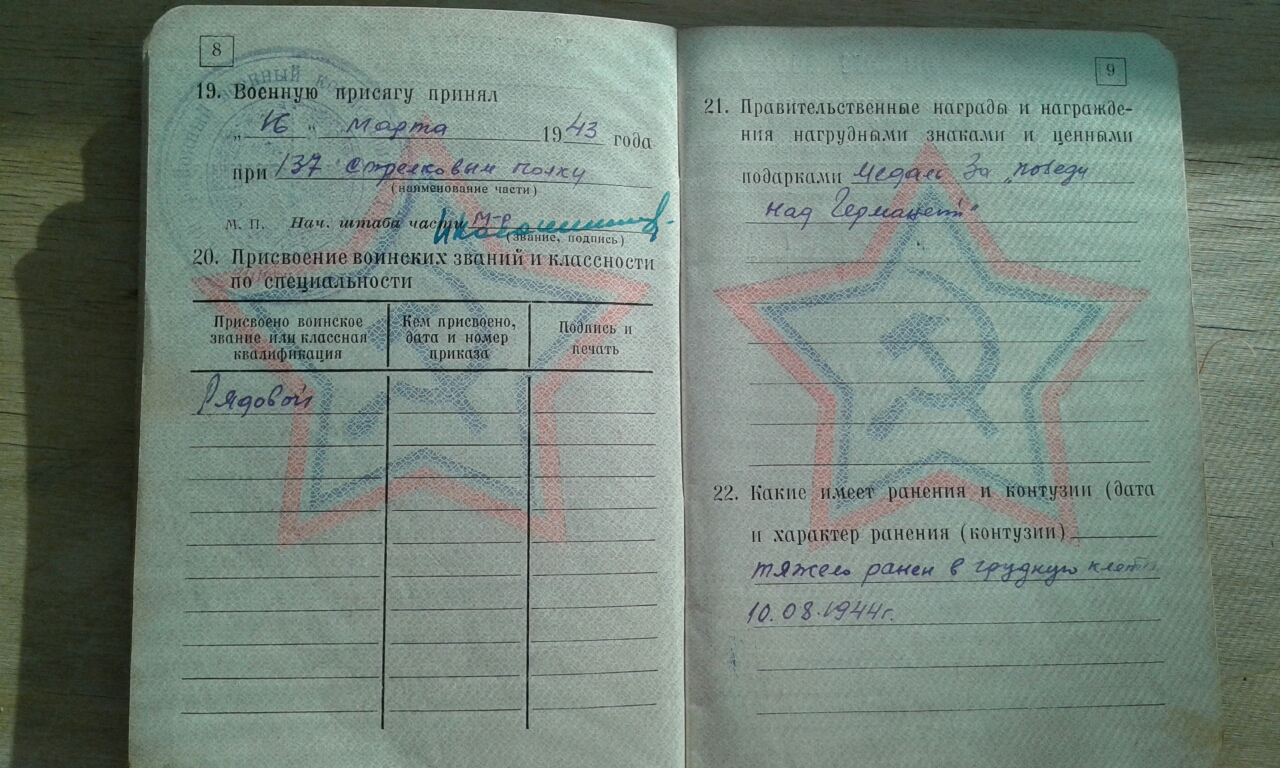 8
19. Военную присягу принял
„ 16 “ марта 1943 года
при 137 стрелковым полку
(наименование части)
М. П. Нач. штаба части м-р
(звание, подпись)
20. Присвоение воинских званий и классности
по специальности
Присвоено воинское звание или классная квалификация
Кем присвоено, дата и номер приказа
Подпись и печать
Рядовой
9
21. Правительственные награды и награжде-
ния нагрудными знаками и ценными
подарками Медаль За „победу
над Германией“
22. Какие имеет ранения и контузии (дата
и характер ранения (контузии)
тяжело ранен в грудную
10.08.1944г.